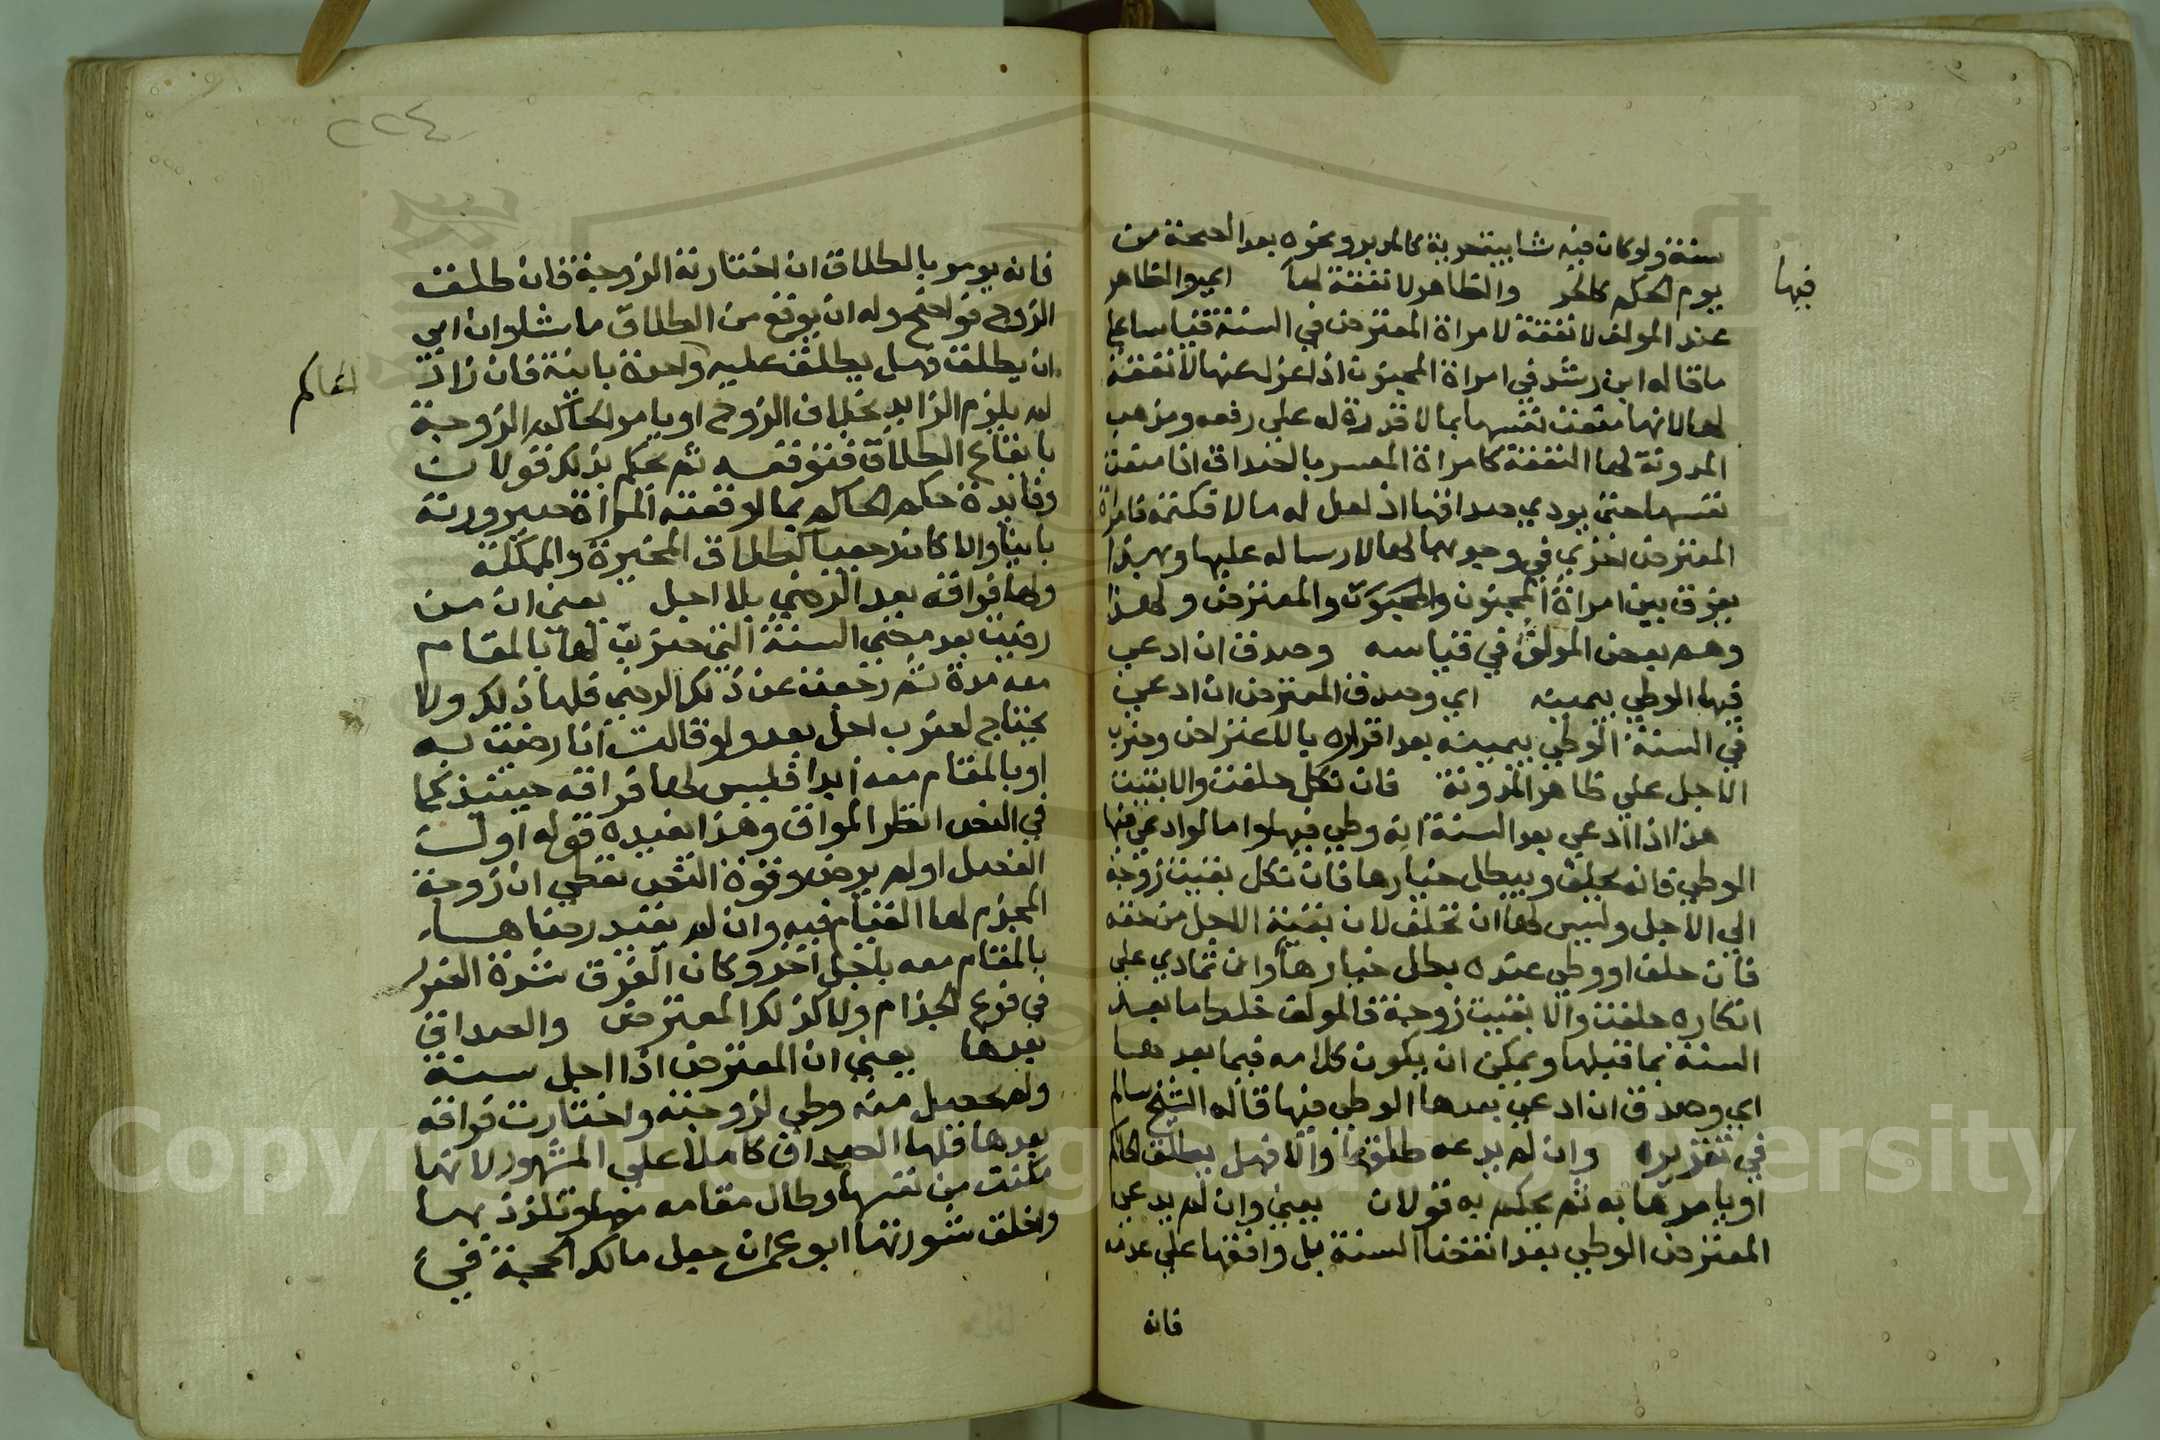 سنة ولو كان فيه شايبة حرية كالمدبر ونحوه بعد الصحة من
يوم الحكم كالحر والظاهر لا نفقة لها اي والظاهر
فيها
عند المولف لا نفقة لامراة المعترض في السنة قياسا على
ما قاله ابن رشد في امراة المجنون اذا عزل عنها لا نفقة
لها لانها منعت نفسها بما لا قدرة له على رفعه ومذهب
المدونة لها النفقة كامراة المعسر بالصداق اذا منعت
نفسها حتى يودي صداقها اذ لعل له مالا فكتمه فامراة
المعترض احرى في وجوبها لها لارساله عليها وبهذا
يفرق بين امراة المجنون والمعترض ولهذا
وهم بعض المولف في قياسه وصدق ان ادعى
فيها الوطي بيمينه اي وصدق المعترض ان ادعى
في السنة الوطي بيمينه بعد اقراره بالاعتراض وضرب
الاجل على ظاهر المدونة فان نكل حلفت والا بقيت
هذا اذا ادعى بعد السنة انه وطي فيها واما لو ادعى فيها
الوطي فانه يحلف ويبطل خيارها فان نكل بقيت زوجة
الى الاجل وليس لها ان تحلف لان بقية الاجل من حقه
فان حلف او وطي عنده بطل خيارها وان تمادي على
انكاره حلفت والا بقيت زوجة فالمولف خلط ما بعد
السنة بما قبلها ويمكن ان يكون كلامه فيما بعدها
اي وصدق ان ادعى بعدها الوطي فيها قاله الشيخ سالم
في تقريره وان لم يدعه طلقها والا فهل يطلق الحاكم
او يامرها به ثم يحكم به قولان يعني وان لم يدعي
المعترض الوطي بعد انقضا السنة بل وافقها على عدمه
فانه
٢٢٤
فانه يومر بالطلاق ان اختارته الزوجة فان طلق
الزوج فواضح وله ان يوقع من الطلاق ما شا وان ابى
ان يطلق فهل يطلق عليه واحدة باينة فان زاد
الحاكم
لم يلزم الزايد بخلاف الزوج او يامر الحاكم الزوجة
بايقاع الطلاق فتوقعه ثم يحكم بذلك قولان
وفايدة حكم الحاكم بما اوقعته المراة صيرورته
باينا والا كان رجعيا كطلاق المخيرة والمملكة
ولها فراقه بعد الرضى بلا اجل يعني ان من
رضيت بعد مضي السنة التي ضربت لها بالمقام
معه مدة ثم رجعت عن ذلك الرضى فلها ذلك ولا
يحتاج لضرب اجل بعد ولو قالت انا رضيت به
او بالمقام معه ابدا فليس لها فراقه حينيذ كما
في النص انظر المواق وهذا يفيده قوله اول
الفصل او لم يرض وقوة النص تعطي ان زوجة
المجذم لها القيام فيه وان لم تقيد رضاها
بالمقام معه باجل اخر وكان الفرق شدة الضرر
في فرع الجذام ولا كذلك المعترض والصداق
بعدها يعني ان المعترض اذا اجل سنة
ولم يحصل منه وطي لزوجته واختارت فراقه
بعدها فلها الصداق كاملا على المشهور لانها
مكنت من نفسها وطال مقامه معها وتلذذ بها
واخلق شورتها ابو عمران جعل مالك الحجة في